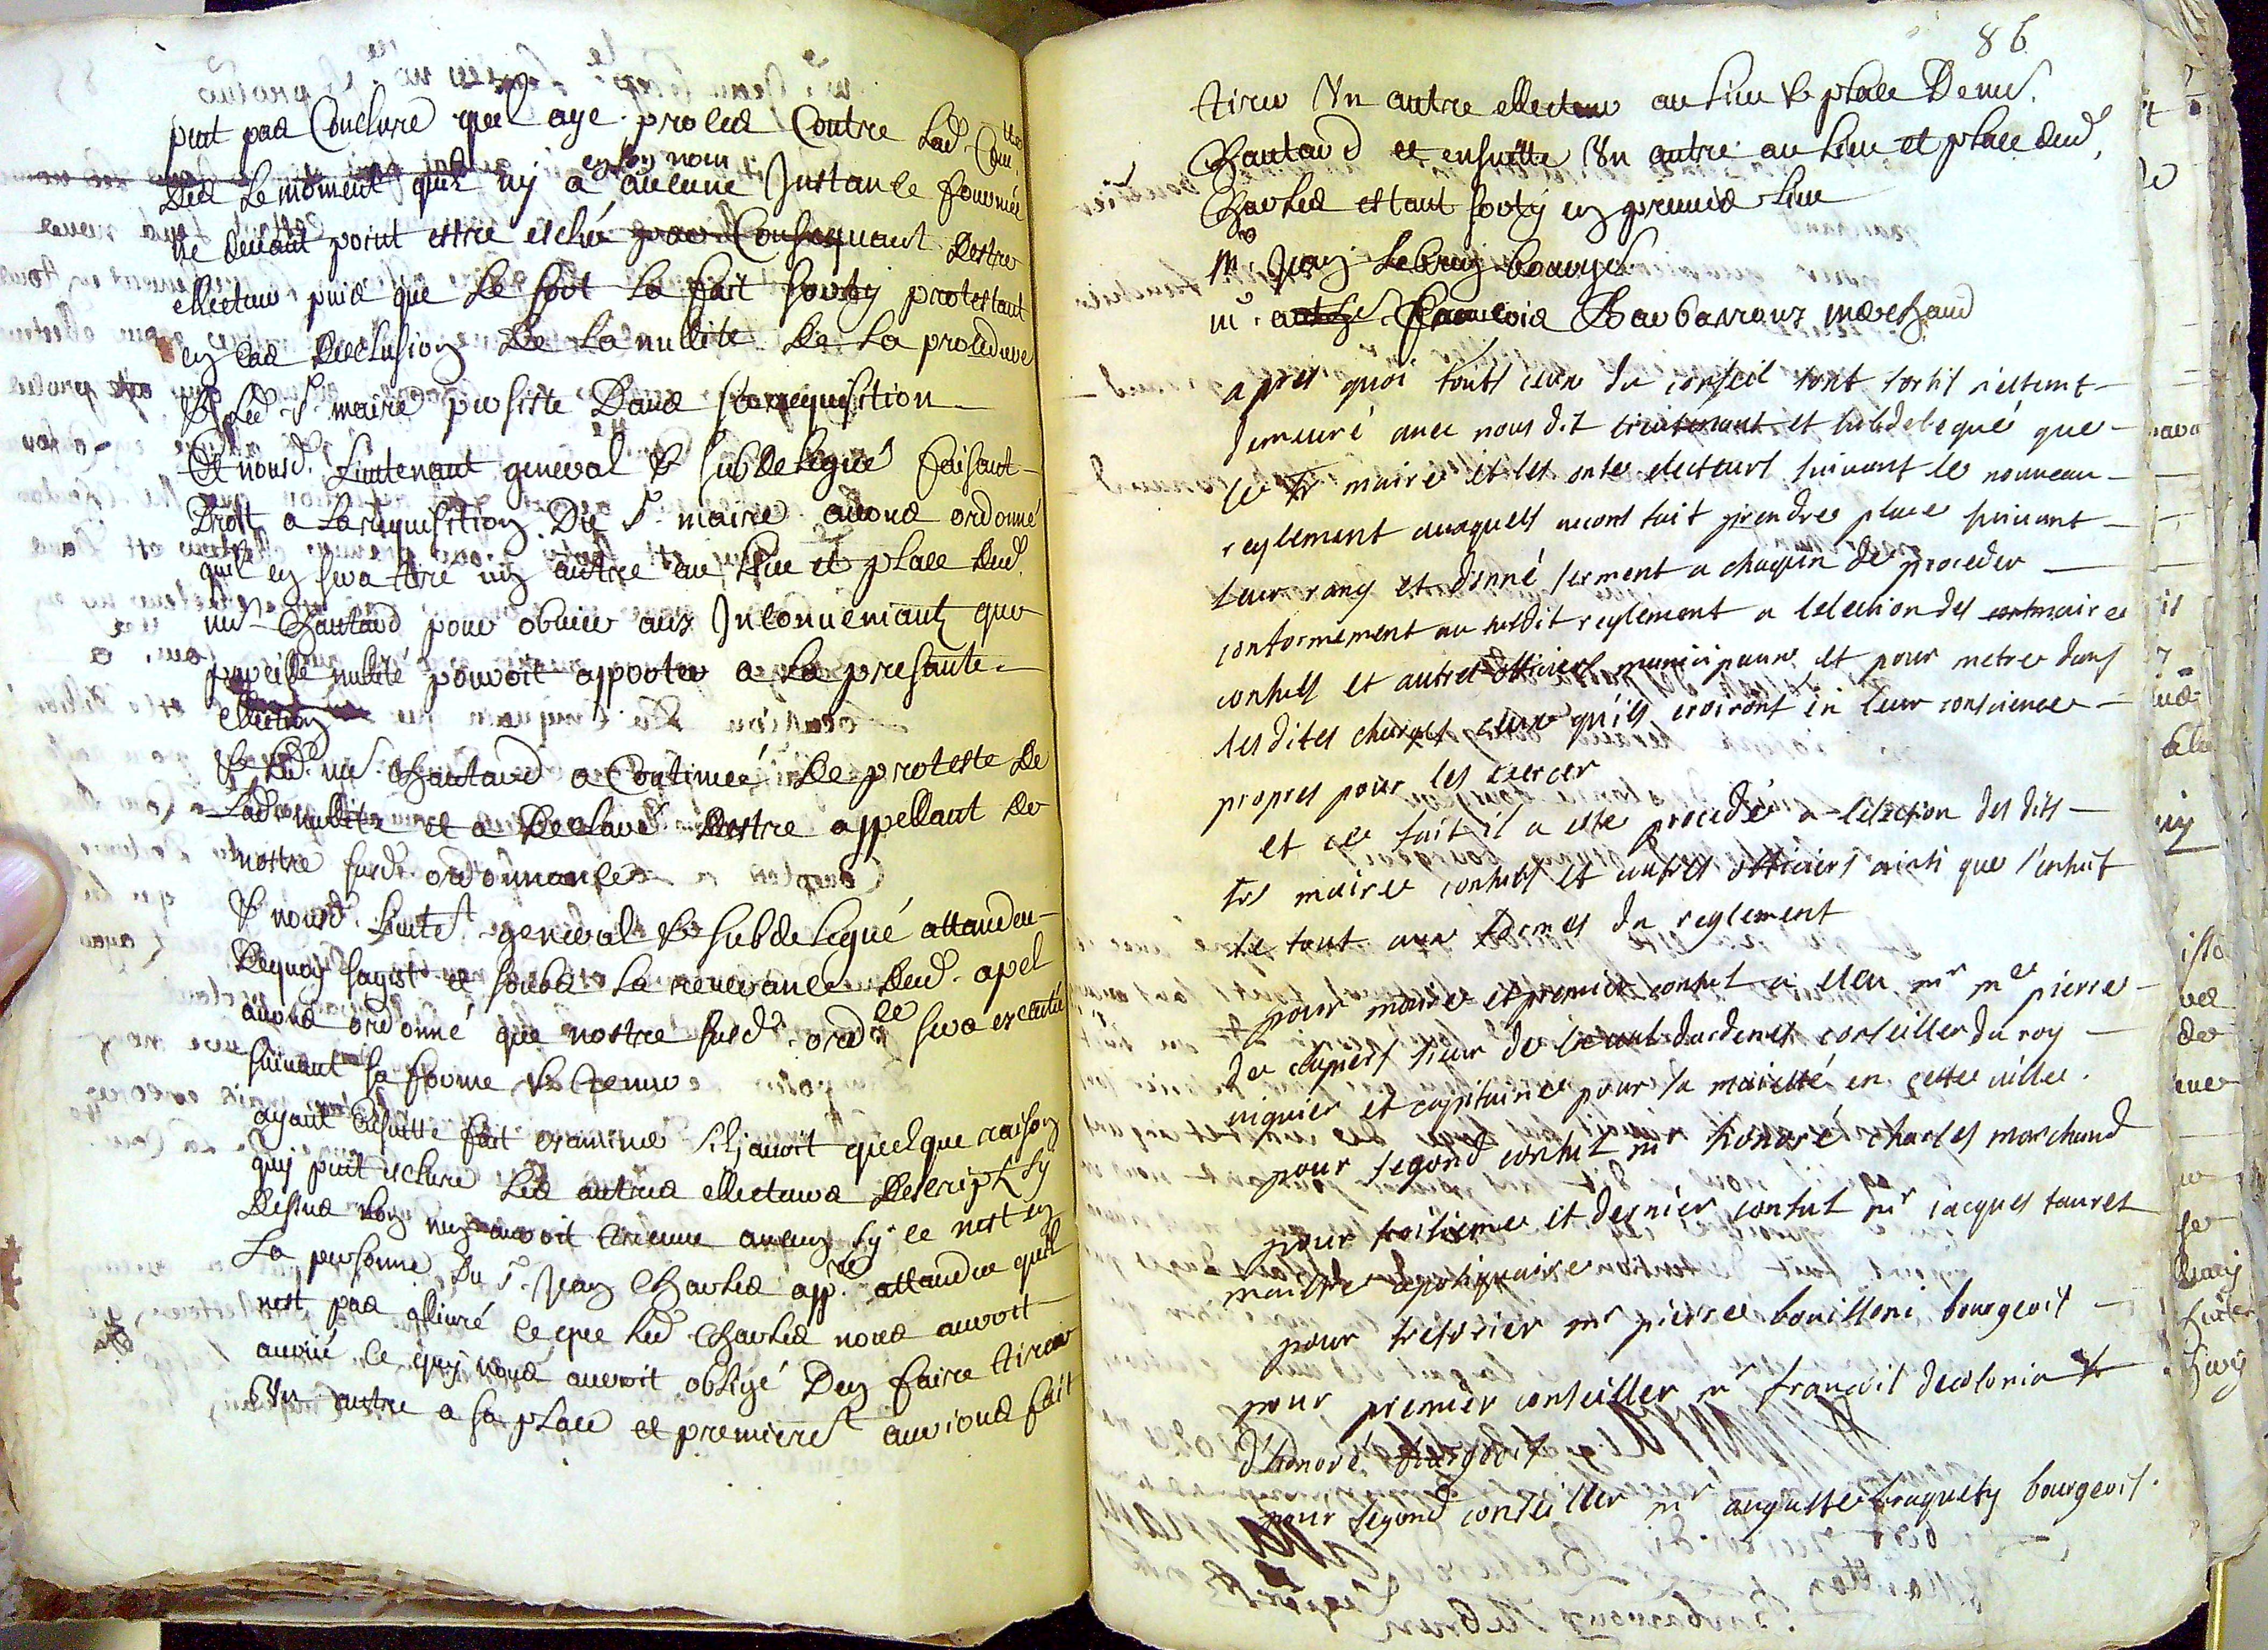 peut pas Conclure quil aye proces Contre Lad. Com.té
Des Le moment quil ny a en son nom aucune Instance fourmée
ne devant point estre esclus par Consequant Destre
ellecteur puis que Le sort La fait sorty protestant
en cas Desclusion De La nullité De La procedure
& Led. Sr. maire persiste Dans sa requisition
Et nousd. Lieutenant general & subdelegué faisant
Droit a La requisition Du Sr. maire avons ordonné
quil en sera tiré un autre au Lieu et place dud.
me Chautard pour obvier aux Inconveniants que
pareille nullité pouroit apporter a La presante
ellection
& Led. me Chautard a Continué De proteste De
Lad. nullité et a Declaré Destre appellant De
nostre susd. ordonnance
& nousd. Lieutt. general & subdelegué attandeu
Dequoy sagist et soubs La relevance Dud. apel
avons ordonné que nostre susd. ordce sera executée
suivant sa forme & teneur
ayant Ensuitte fait examiner sil j avoit quelque raison
quy puit esclure Les autres ellecteurs Descripts sy
Dessus Lon ny auroit trouvé aucun sy ce nest en
La personne Du Sr. Jean Charles app.re attandeu quil
nest pas alivré ce que Led. Charles nous auroit
avoué ce quy nous auroit obligé Den faire tirer
Un autre a sa place et premieret aurions fait
86
tirer Un autre ellecteur au Lieu & place De me.
Chautard et ensuitte Un autre au Lieu et place dud.
Charles estant sorty en premier Lieu
Mr. Jean Lebrun bourgs.
m. François Barbarroux marchand
apres quoi touts ceux du conseil sont sortis n'estant
demeuré avec nous dit lieutenant et subdelegué que
le sr maire et les onse electeurs suivant le nouveau
reglement auxquels avons fait prendre place suivant
leur rang et donné serment a chaquun de proceder
conformement au susdit reglement a lelection des maire
consuls et autres officiers municipaux et pour metre dans
lesdites charges ceux quils croiront en leur conscience
propres pour les exercer
et ce fait il a esté procedé a lelection des dits
srs maire consuls et autres officiers ainsi que s'ensuit
le tout aux termes du reglement
pour maire et premier consul a eleu mr me pierre
de clapiers sieur de conseiller du roy
viguier et capitaine pour sa maiesté en cette ville.
pour segond consul mr honoré charles marchand
pour troisieme et dernier consul mr iacques tauret
maistre apotiquaire
pour tresorier mr pierre bouilloni bourgeois
pour premier conseiller mr francois decolonia
d'honoré bourgeois
pour segond conseiller mr auguste braquety bourgeois.